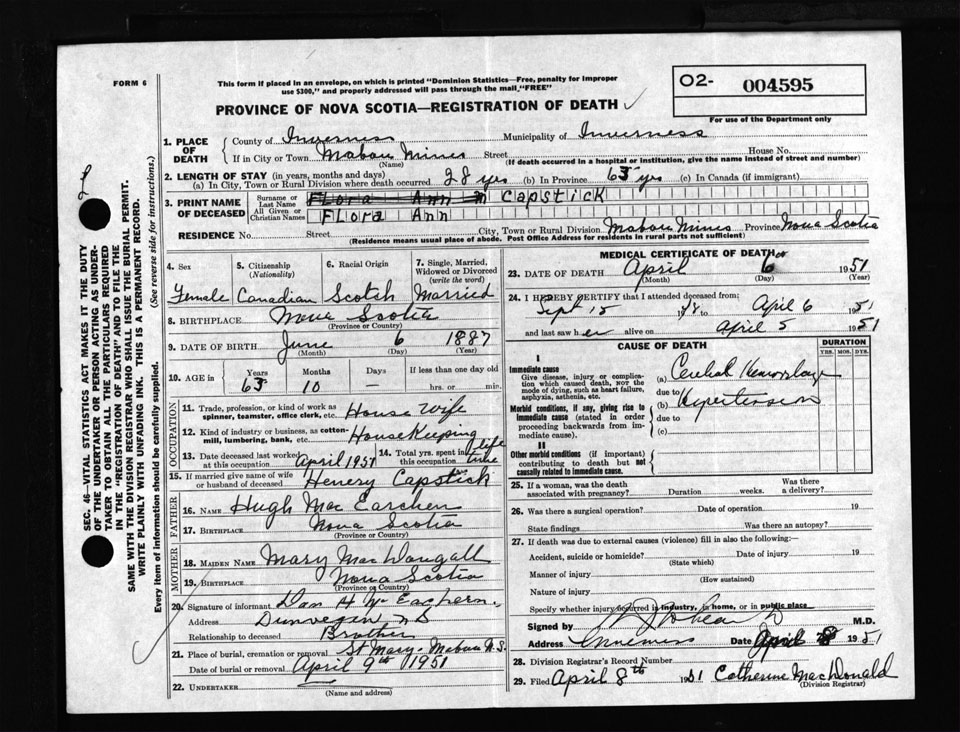 FORM 6
This form if placed in an envelope, on which is printed "Dominion Statistics—Free, penalty for improper
use $300," and properly addressed will pass through the mail "FREE"
O2- 004595
For use of the Department only
PROVINCE OF NOVA SCOTIA—REGISTRATION OF DEATH
1. PLACE OF DEATH
County of Inverness Municipality of Inverness
If in City or Town Mabou Mines Street House No.
(Name) (If death occurred in a hospital or institution, give the name instead of street and number)
2. LENGTH OF STAY (in years, months and days)
(a) In City, Town or Rural Division where death occurred 28 yrs (b) In Province 63 yrs (c) In Canada (if immigrant)
3. PRINT NAME OF DECEASED
Surname or Last Name FLora Ann M Capstick
All Given or Christian Names FLora Ann
RESIDENCE No. Street City, Town or Rural Division Mabou Mines Province Nova Scotia
(Residence means usual place of abode. Post Office Address for residents in rural parts not sufficient)
SEC. 46—VITAL STATISTICS ACT MAKES IT THE DUTY
OF THE UNDERTAKER OR PERSON ACTING AS UNDER-
TAKER TO OBTAIN ALL THE PARTICULARS REQUIRED
IN THE "REGISTRATION OF DEATH" AND TO FILE THE
SAME WITH THE DIVISION REGISTRAR WHO SHALL ISSUE THE BURIAL PERMIT.
WRITE PLAINLY WITH UNFADING INK. THIS IS A PERMANENT RECORD.
Every item of information should be carefully supplied. (See reverse side for instructions.)
4. Sex Female
5. Citizenship (Nationality) Canadian
6. Racial Origin Scotch
7. Single, Married, Widowed or Divorced (write the word) Married
8. BIRTHPLACE Nova Scotia
(Province or Country)
9. DATE OF BIRTH June 6 1887
(Month) (Day) (Year)
10. AGE in Years 63 Months 10 Days — If less than one day old hrs. or min.
OCCUPATION
11. Trade, profession, or kind of work as spinner, teamster, office clerk, etc. House Wife
12. Kind of industry or business, as cotton-mill, lumbering, bank, etc. HouseKeeping
13. Date deceased last worked at this occupation April 1951
14. Total yrs. spent in this occupation life time
15. If married give name of wife or husband of deceased Henery Capstick
FATHER
16. NAME Hugh Mac Earchen
17. BIRTHPLACE Nova Scotia
(Province or Country)
MOTHER
18. MAIDEN NAME Mary MacDougall
19. BIRTHPLACE Nova Scotia
(Province or Country)
20. Signature of informant Dan H Mc Eachern
Address Dunvegan N S
Relationship to deceased Brother
21. Place of burial, cremation or removal St Mary's Mabou N.S.
Date of burial or removal April 9th 1951
22. UNDERTAKER
(Name and address)
MEDICAL CERTIFICATE OF DEATH
23. DATE OF DEATH April 6 1951
(Month) (Day) (Year)
24. I HEREBY CERTIFY that I attended deceased from:
Sept 15 to April 6 1951
and last saw her alive on April 5 1951
CAUSE OF DEATH
DURATION
YRS. MOS. DYS.
I
Immediate cause
Give disease, injury or complication which caused death, NOT the mode of dying, such as heart failure, asphyxia, asthenia, etc.
(a) Cerebral Hemorrhage
due to
Morbid conditions, if any, giving rise to immediate cause (stated in order proceeding backwards from immediate cause).
(b) Hypertension
due to
(c)
II
Other morbid conditions (if important) contributing to death but not causally related to immediate cause.
25. If a woman, was the death associated with pregnancy? Duration weeks. Was there a delivery?
26. Was there a surgical operation? Date of operation 19
State findings Was there an autopsy?
27. If death was due to external causes (violence) fill in also the following:—
Accident, suicide or homicide? Date of injury 19
(State which)
Manner of injury
(How sustained)
Nature of injury
Specify whether injury occurred in industry, in home, or in public place
Signed by M.D.
Address Inverness Date April 8 1951
28. Division Registrar's Record Number
29. Filed April 8th 1951 Catherine MacDonald
(Division Registrar)